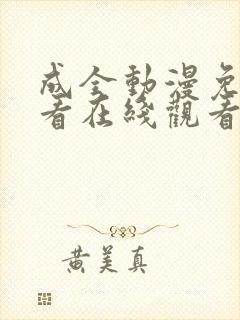 成全動漫免
看在綫觀看
黄美真